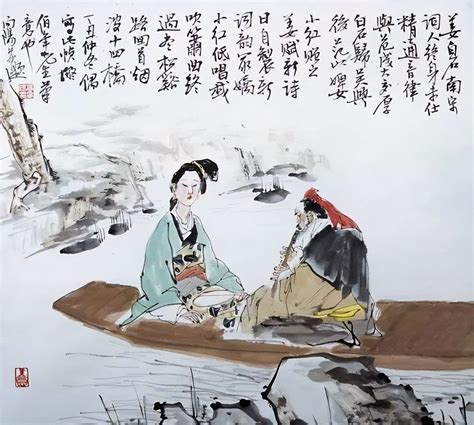 姜白石南宋
词人终身未仕
精通音律
与范成大交厚
白石归吴興
後范以婢女
小红赠之
姜赋新诗
曰自製新
词韵最嬌
小红低唱我
吹箫曲终
过尽松谿
路回首烟
波十四橋
丁丑仲冬偶
写此帧
伯年先生筆
意也
向陽并题